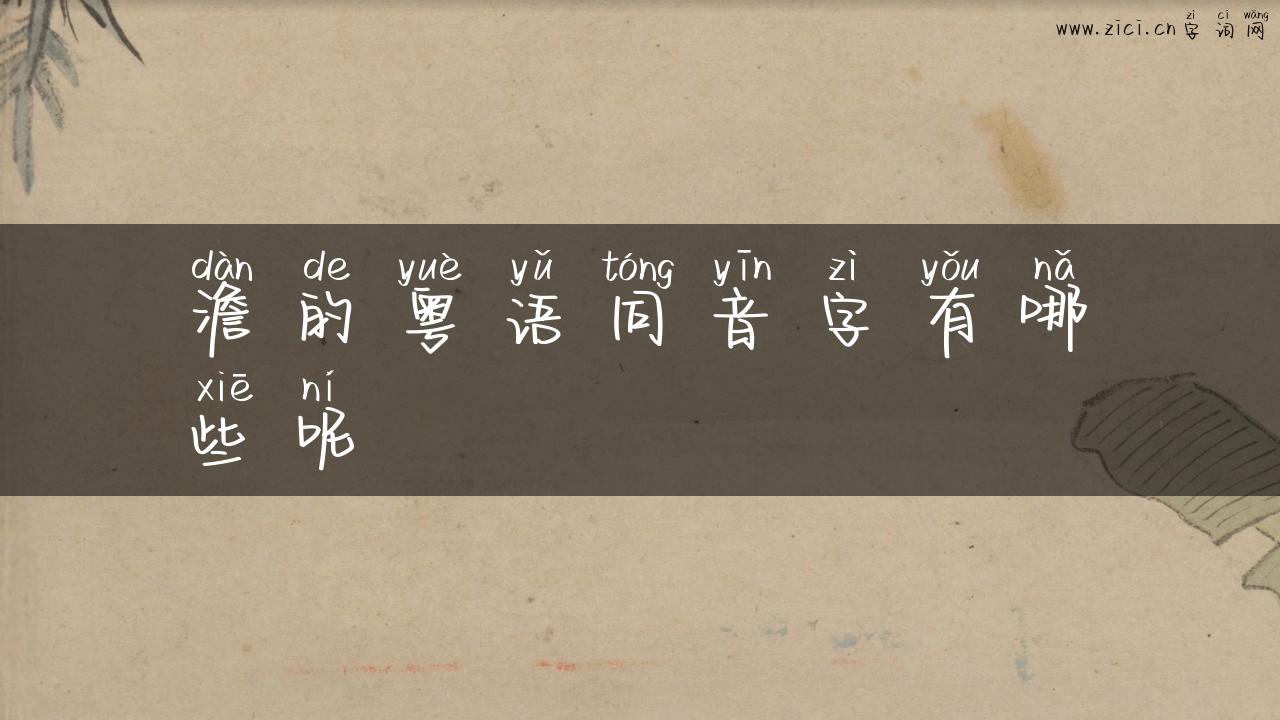 zì cí wǎng
www.zici.cn 字词网
dàn de yuè yǔ tóng yīn zì yǒu nǎ
澹的粤语同音字有哪
xiē ní
些呢